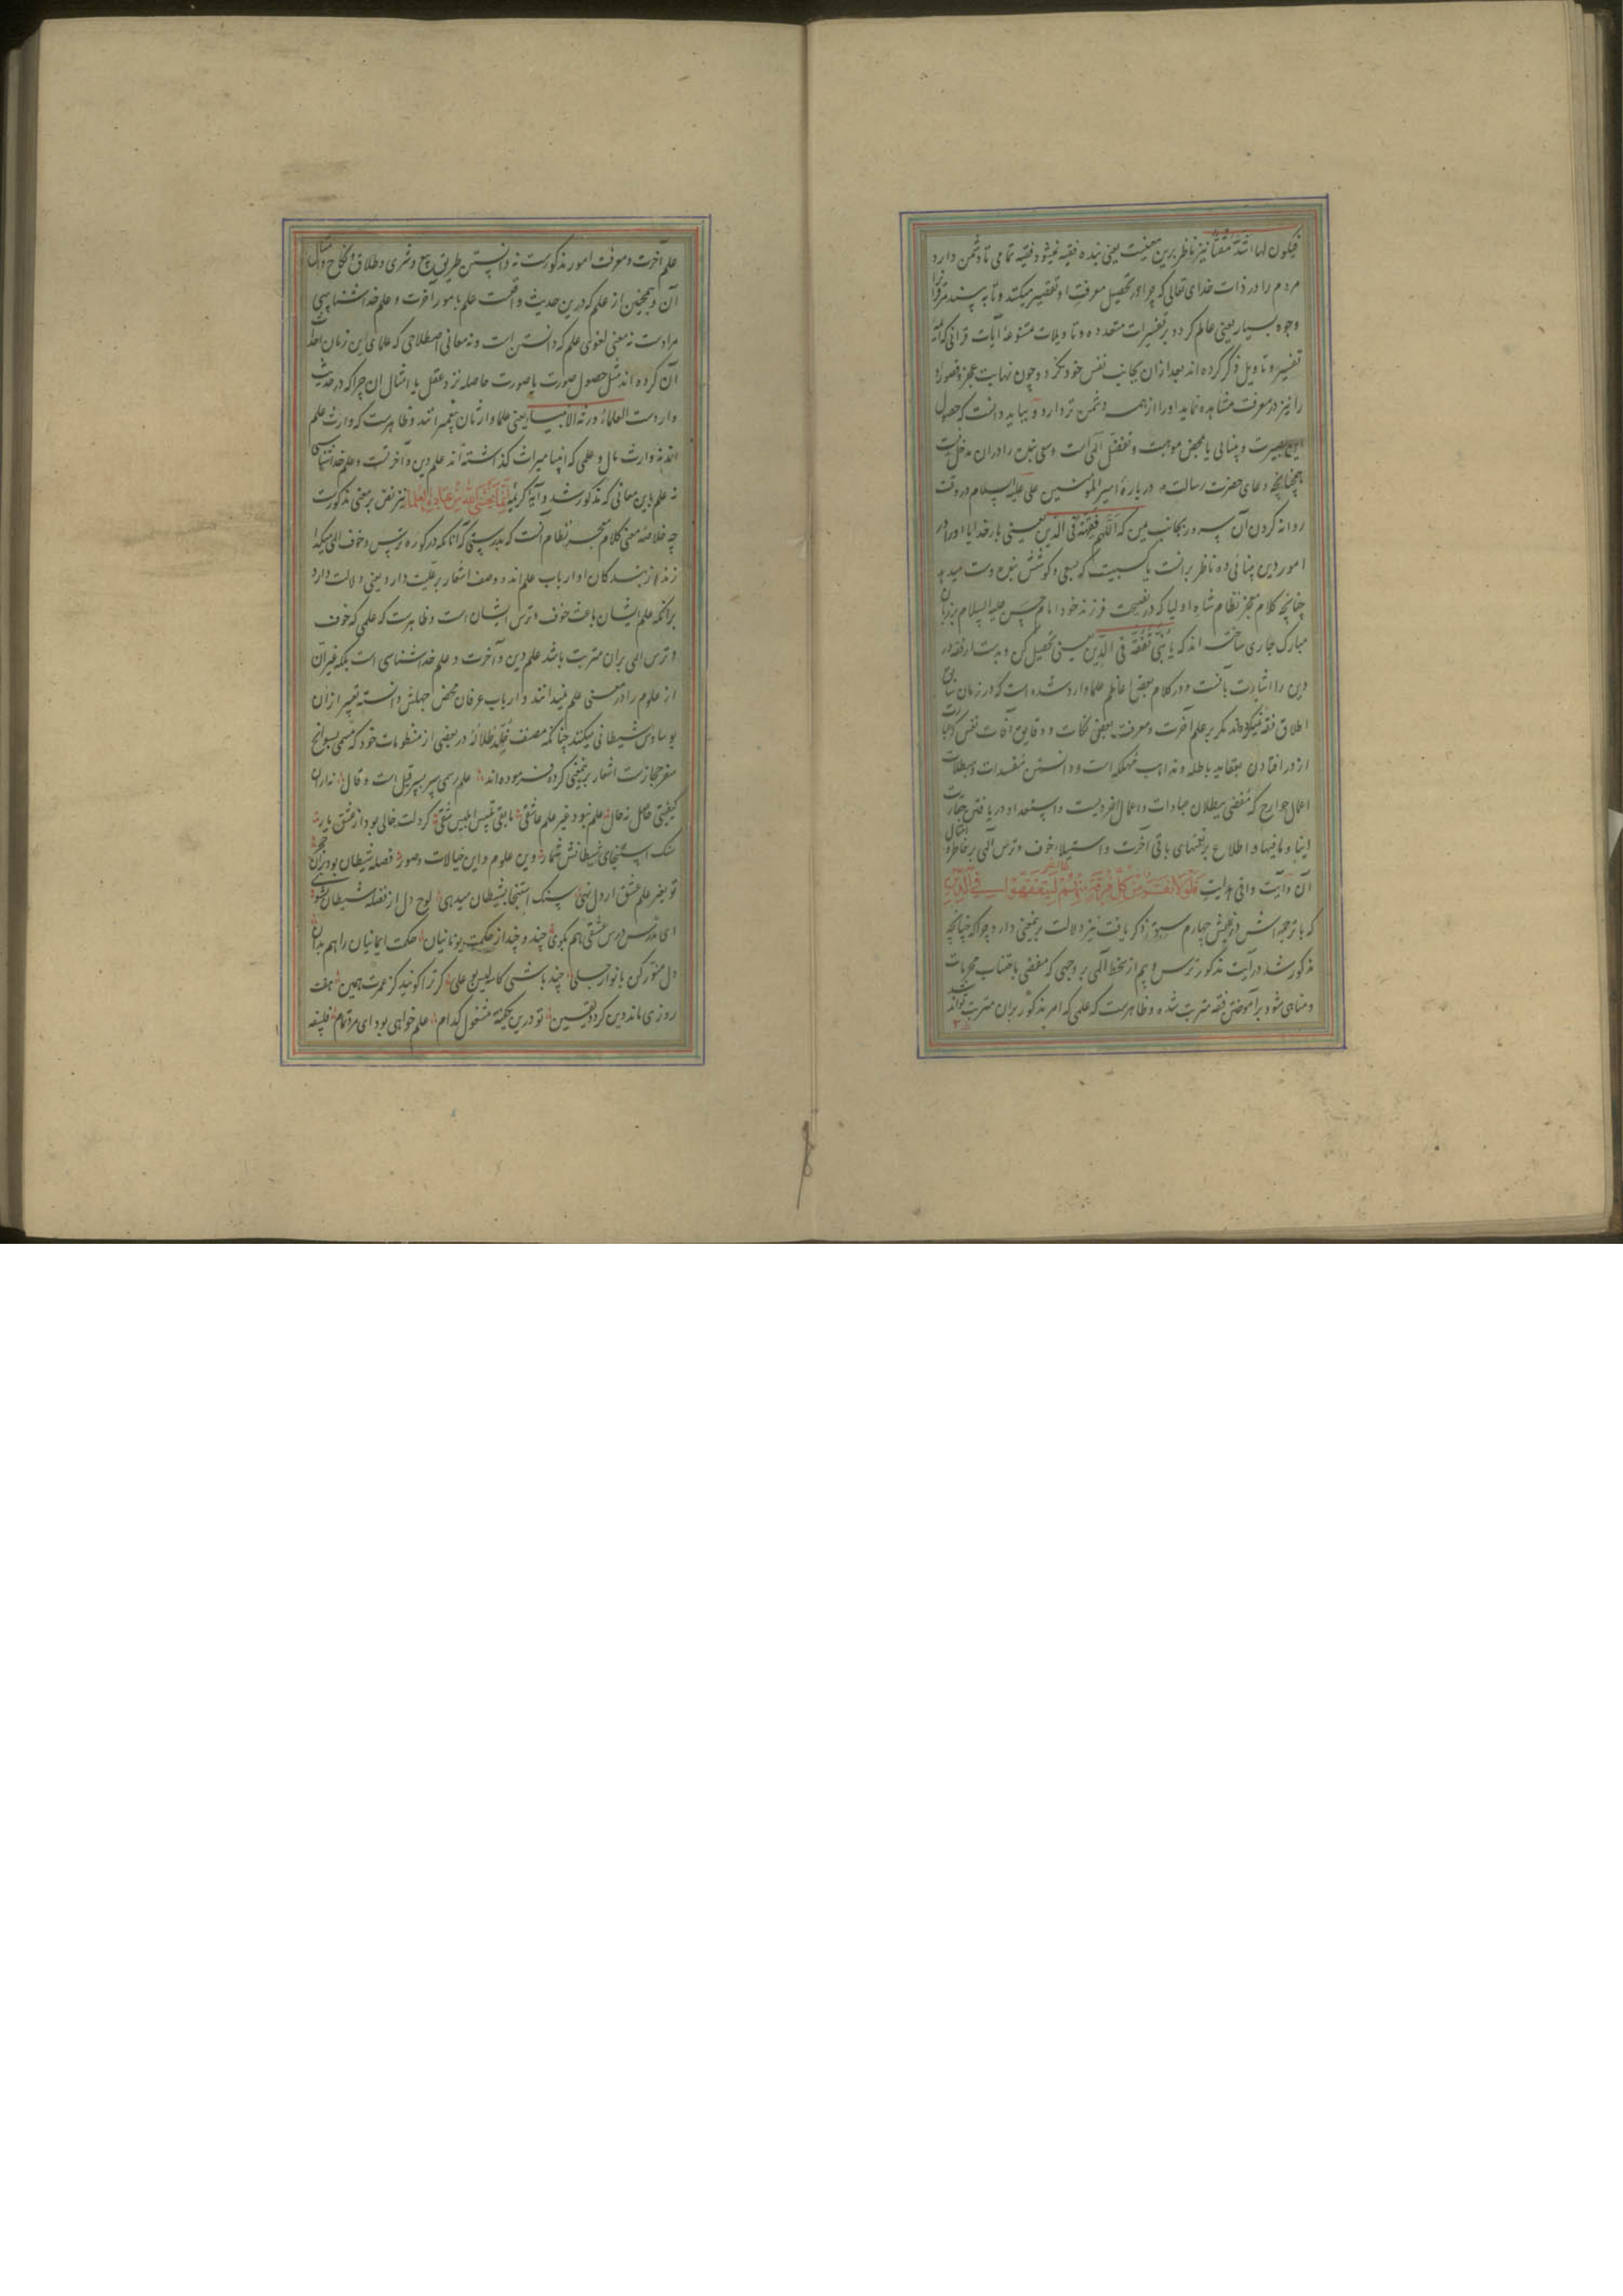 فیکون لها اشد مقتا نیز ناظر برین معنیست یعنی بنده فقیه نمیشود فقیه تمامی تا دشمن دارد
مردم را در ذات خدای تعالی که چرا در تحصیل معرفت او تقصیر میکنند و تا به بیند مر قرآنرا
وجوه بسیار یعنی عالم کردد بر تفسیرات متعدده و تاویلات متنوعۀ آیات قرانی که ائمه
تفسیر و تاویل ذکر کرده اند بعد ازان بجانب نفس خود نکرد و چون نهایت عجز و قصور او
را نیز در معرفت مشاهده نماید او را از همه دشمن تر دارد و بباید دانست که حصول
این بصیرت و بینائی یا بمحض موهبت و تفضل الهی است و سعی بنده را دران مدخل نیست
همچنانچه دعای حضرت رسالت در بارۀ امیر المؤمنین علی علیه السلام در وقت
روانه کردن آن سرور بجانب یمن که اللهم فقهه فی الدین یعنی بار خدایا او را در
امور دین بینائی ده ناظر برانست یا کسبیست که بسعی و کوشش بنده دست میدهد
چنانچه کلام معجز نظام شاه اولیا که در نصیحت فرزند خود امام حسن علیه السلام بر زبان
مبارک جاری ساخته اند که یا بنی تفقه فی الدین یعنی تحصیل کن و بدست ار فقه در
دین را اشارت بآنست و در کلام بعض اعاظم علما وارد شده است که در زمان سابق
اطلاق فقه نمیکرده اند مکر بر علم آخرت و معرفت بعضی نکات و دقایق آفات نفس که عبارت
از در افتادن بعقاید باطله و مذاهب مهلکه است و دانستن مفسدات و مبطلات
اعمال جوارح که مفضی ببطلان عبادات و اعمال اخرویست و استعداد دریافتن حقارت
دنیا و مافیها و اطلاع بر نعمتهای باقی آخرت و استیلاء خوف و ترس الهی بر خاطر و امثال
آن و آیت وافی هدایت فلولا نفر من کل فرقة منهم طائفة لیتفقهوا فی الدین
که با ترجمه اش در بخش چهارم سبق ذکر یافت نیز دلالت برینمعنی دارد چرا که چنانچه
مذکور شد در آیت مذکور ترس و بیم از سخط الهی بر وجهی که مفضی باجتناب محرمات
و مناهی شود بر آموختن فقه مترتب شده و ظاهرست که علمی که امر مذکور بران مترتب تواند شد
علم آخرت و معرفت امور مذکورست نه دانستن طریق بیع و شری و طلاق و نکاح و امثال
آن و همچنین از علم که درین حدیث واقعست علم بامور آخرت و علم خداشناسی
مرادست نه معنی لغوی علم که دانستن است و نه معانی اصطلاحی که علمای این زمان احداث
آن کرده اند مثل حصول صورت یا صورت حاصله نزد عقل یا امثال ان چرا که در حدیث
واردست العلماء ورثة الانبیاء یعنی علما وارثان پیغمبرانند و ظاهرست که وارث علم
اند نه وارث مال و علمی که انبیا میراث کذاشته اند علم دین و آخرتست و علم خداشناسی
نه علم باین معانی که مذکور شد و آیۀ کریمۀ انما یخشی الله من عباده العلماء نیز نص بر معنی مذکورست
چه خلاصۀ معنی کلام معجز نظام آنست که بدرستی که آنانکه در کوره ترس و خوف الهی میکدا
زند از بندکان او ارباب علم اند و وصف اشعار بر علیت دارد یعنی دلالت دارد
برانکه علم ایشان باعث خوف و ترس ایشان است و ظاهرست که علمی که خوف
و ترس الهی بران مترتب باشد علم دین و آخرت و علم خداشناسی است بلکه غیر آن
از علوم را در معنی علم نمیدانند و ارباب عرفان محض جهلش دانسته تعبیر ازان
بوساوس شیطانی میکنند چنانکه مصنف خلد ظلاله در بعضی از منظومات خود که مسمی بسوانح
سفر حجازست اشعار برینمعنی کرده فرموده اند علم رسمی سر بسر قیل است و قال نه ازان
کیفیتی حاصل نه حال علم نبود غیر علم عاشقی مابقی تلبیس ابلیس شقی کر دلت خالی بود از عشق یار
سنک استنجای شیطانش شمار وین علوم و این خیالات و صور فضله شیطان بود بران حجر
تو بغیر علم عشق ار دل نهی سنک استنجا بشیطان میدهی لوح دل از فضله شیطان بشوی
ای مدرس درس عشقی هم بکوی چند و چند از حکمت یونانیان حکمت ایمانیان را هم بدان
دل منور کن بانوار جلی چند باشی کاسه لیس بو علی کر ترا کویند کز عمرت همین هفت
روزی مانده این کردد یقین تو درین یکهفته مشغول کدام علم خواهی بود ای مرد تمام فلسفه